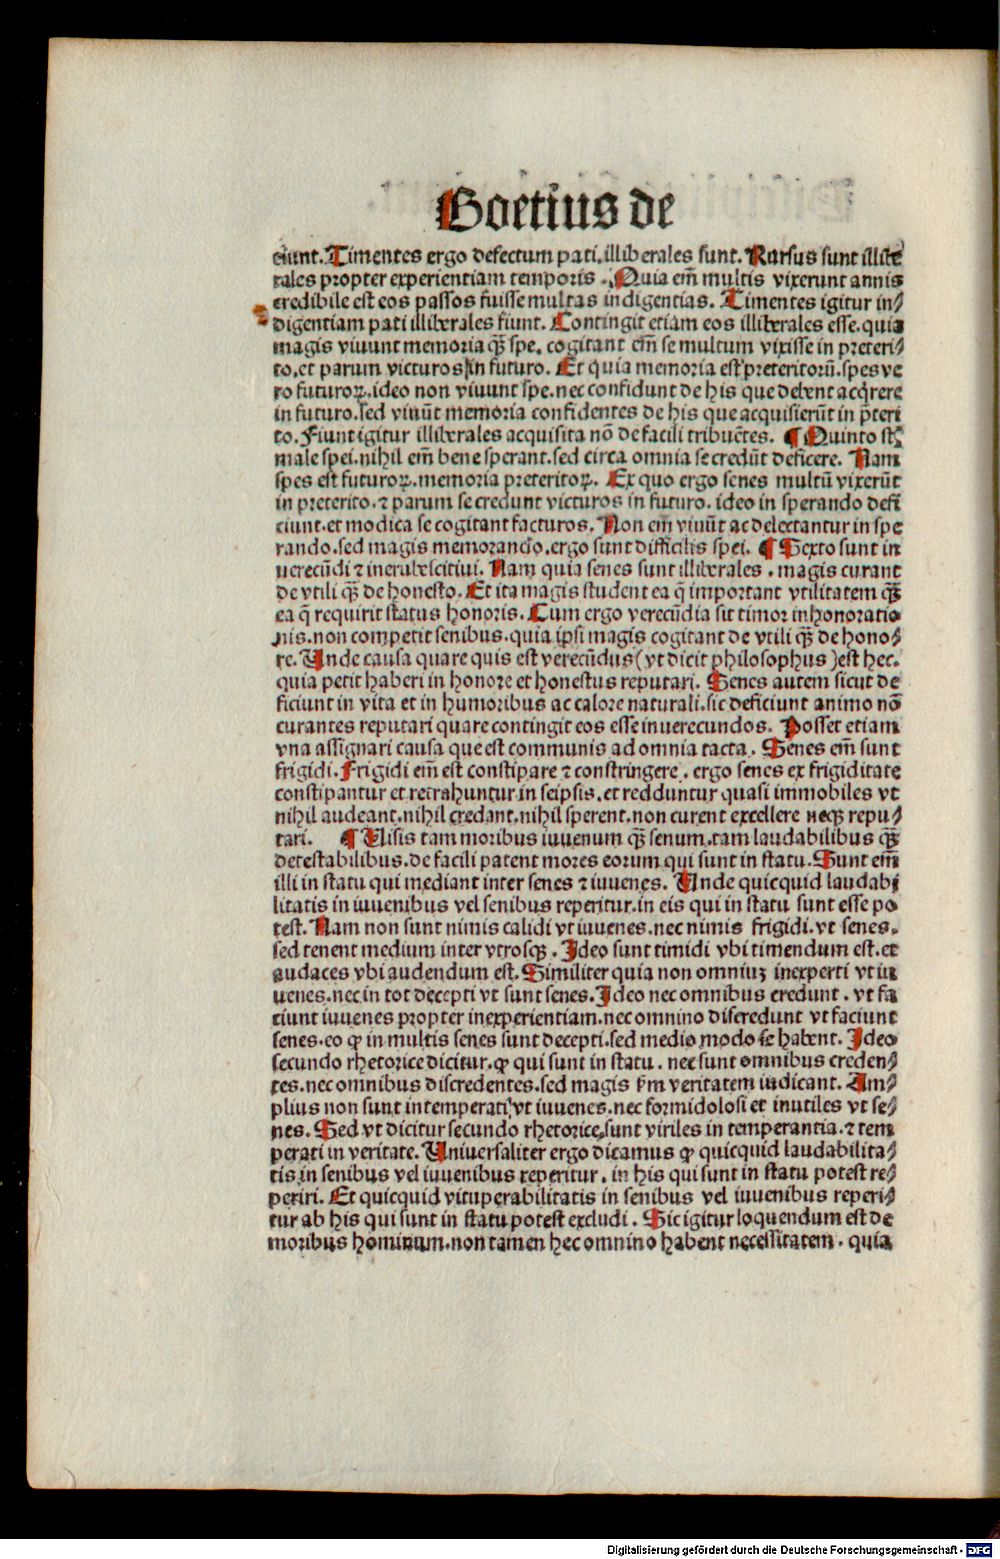 Boetius de
ciunt. Timentes ergo defectum pati. illiberales sunt. Rursus sunt illibe
rales propter experientiam temporis. Quia em̄ multis vixerunt annis
credibile est eos passos fuisse multas indigentias. Timentes igitur in⸗
digentiam pati illiberales fiunt. Contingit etiam eos illiberales esse. quia
magis viuunt memoria qȝ̄ spe. cogitant em̄ se multum vixisse in preteri⸗
to. et parum victuros in futuro. Et quia memoria est preteritorū. spes ve
ro futuroꝝ. ideo non viuunt spe. nec confidunt de his que debent acq̇rere
in futuro. sed viuūt memoria confidentes de his que acquisierūt in p̄teri
to. Fiunt igitur illiberales acquisita nō de facili tribuētes. ¶ Quinto st̄
male spei. nihil em̄ bene sperant. sed circa omnia se credūt deficere. Nam
spes est futuroꝝ. memoria preteritoꝝ. Ex quo ergo senes multū vixerūt
in preterito. ⁊ parum se credunt victuros in futuro. ideo in sperando defi
ciunt. et modica se cogitant facturos. Non em̄ viuūt ac delectantur in spe
rando. sed magis memorando. ergo sunt difficilis spei. ¶ Sexto sunt in
uerecūdi ⁊ inerubescitiui. Nam quia senes sunt illiberales. magis curant
de vtili qȝ̄ de honesto. Et ita magis student ea q̄ important vtilitatem qȝ̄
ea q̄ requirit status honoris. Cum ergo verecūdia sit timor inhonoratio
nis. non competit senibus. quia ipsi magis cogitant de vtili qȝ̄ de hono⸗
re. Unde causa quare quis est verecūdus (vt dicit philosophus) est hec.
quia petit haberi in honore et honestus reputari. Senes autem sicut de
ficiunt in vita et in humoribus ac calore naturali. sic deficiunt animo nō
curantes reputari quare contingit eos esse inuerecundos. Posset etiam
vna assignari causa que est communis ad omnia tacta. Senes em̄ sunt
frigidi. Frigidi em̄ est constipare ⁊ constringere. ergo senes ex frigiditate
constipantur et retrahuntur in seipsis. et redduntur quasi immobiles vt
nihil audeant. nihil credant. nihil sperent. non curent excellere neqȝ repu⸗
tari. ¶ Visis tam moribus iuuenum qȝ̄ senum. tam laudabilibus qȝ̄
detestabilibus. de facili patent mores eorum qui sunt in statu. Sunt em̄
illi in statu qui mediant inter senes ⁊ iuuenes. Unde quicquid laudabi
litatis in iuuenibus vel senibus reperitur. in eis qui in statu sunt esse po
test. Nam non sunt nimis calidi vt iuuenes. nec nimis frigidi. vt senes.
sed tenent medium inter vtrosqȝ. Ideo sunt timidi vbi timendum est. et
audaces vbi audendum est. Similiter quia non omniuȝ inexperti vt iu
uenes. nec in tot decepti vt sunt senes. Ideo nec omnibus credunt. vt fa
ciunt iuuenes propter inexperientiam. nec omnino discredunt vt faciunt
senes. eo ꝙ in multis senes sunt decepti. sed medio modo se habent. Ideo
secundo rhetorice dicitur. ꝙ qui sunt in statu. nec sunt omnibus creden⸗
tes. nec omnibus discredentes. sed magis ẜm veritatem iudicant. Am⸗
plius non sunt intemperati vt iuuenes. nec formidolosi et inutiles vt se⸗
nes. Sed vt dicitur secundo rhetorice. sunt viriles in temperantia. ⁊ tem
perati in veritate. Uniuersaliter ergo dicamus ꝙ quicquid laudabilita⸗
tis in senibus vel iuuenibus reperitur. in his qui sunt in statu potest re⸗
periri. Et quicquid vituperabilitatis in senibus vel iuuenibus reperi⸗
tur ab his qui sunt in statu potest excludi. Sic igitur loquendum est de
moribus hominum. non tamen hec omnino habent necessitatem. quia
Digitalisierung gefördert durch die Deutsche Forschungsgemeinschaft - DFG